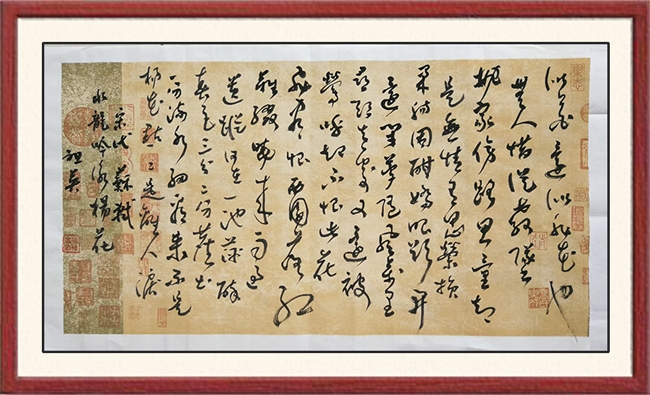 似花還似非花也
無人惜從教墜
拋家傍路思量却
是無情有思縈損
柔腸困酣嬌眼欲開
還閉夢隨風萬里
尋郎去處又還被
鶯呼起不恨此花
飛盡恨西園落紅
難綴曉來雨過
遺蹤何在一池萍碎
春色三分二分塵土
一分流水細看來不是
楊花點點是離人淚
宋代蘇軾
水龍吟詠楊花